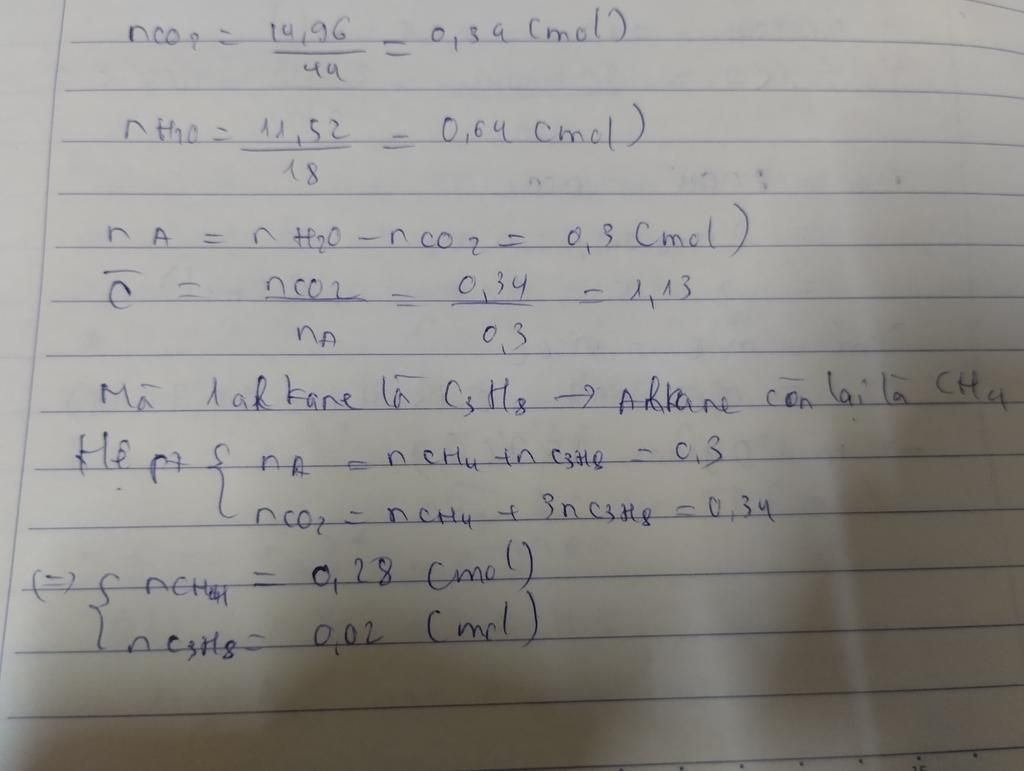 nCO2 = 14,96/44 = 0,34 (mol)
nH2O = 11,52/18 = 0,64 (mol)
nA = nH2O - nCO2 = 0,3 (mol)
C̅ = nCO2/nA = 0,34/0,3 = 1,13
Mà 1 alkane là C3H8 → Alkane còn lại là CH4
Hệ pt { nA = nCH4 + nC3H8 = 0,3
nCO2 = nCH4 + 3nC3H8 = 0,34
(=) { nCH4 = 0,28 (mol)
nC3H8 = 0,02 (mol)